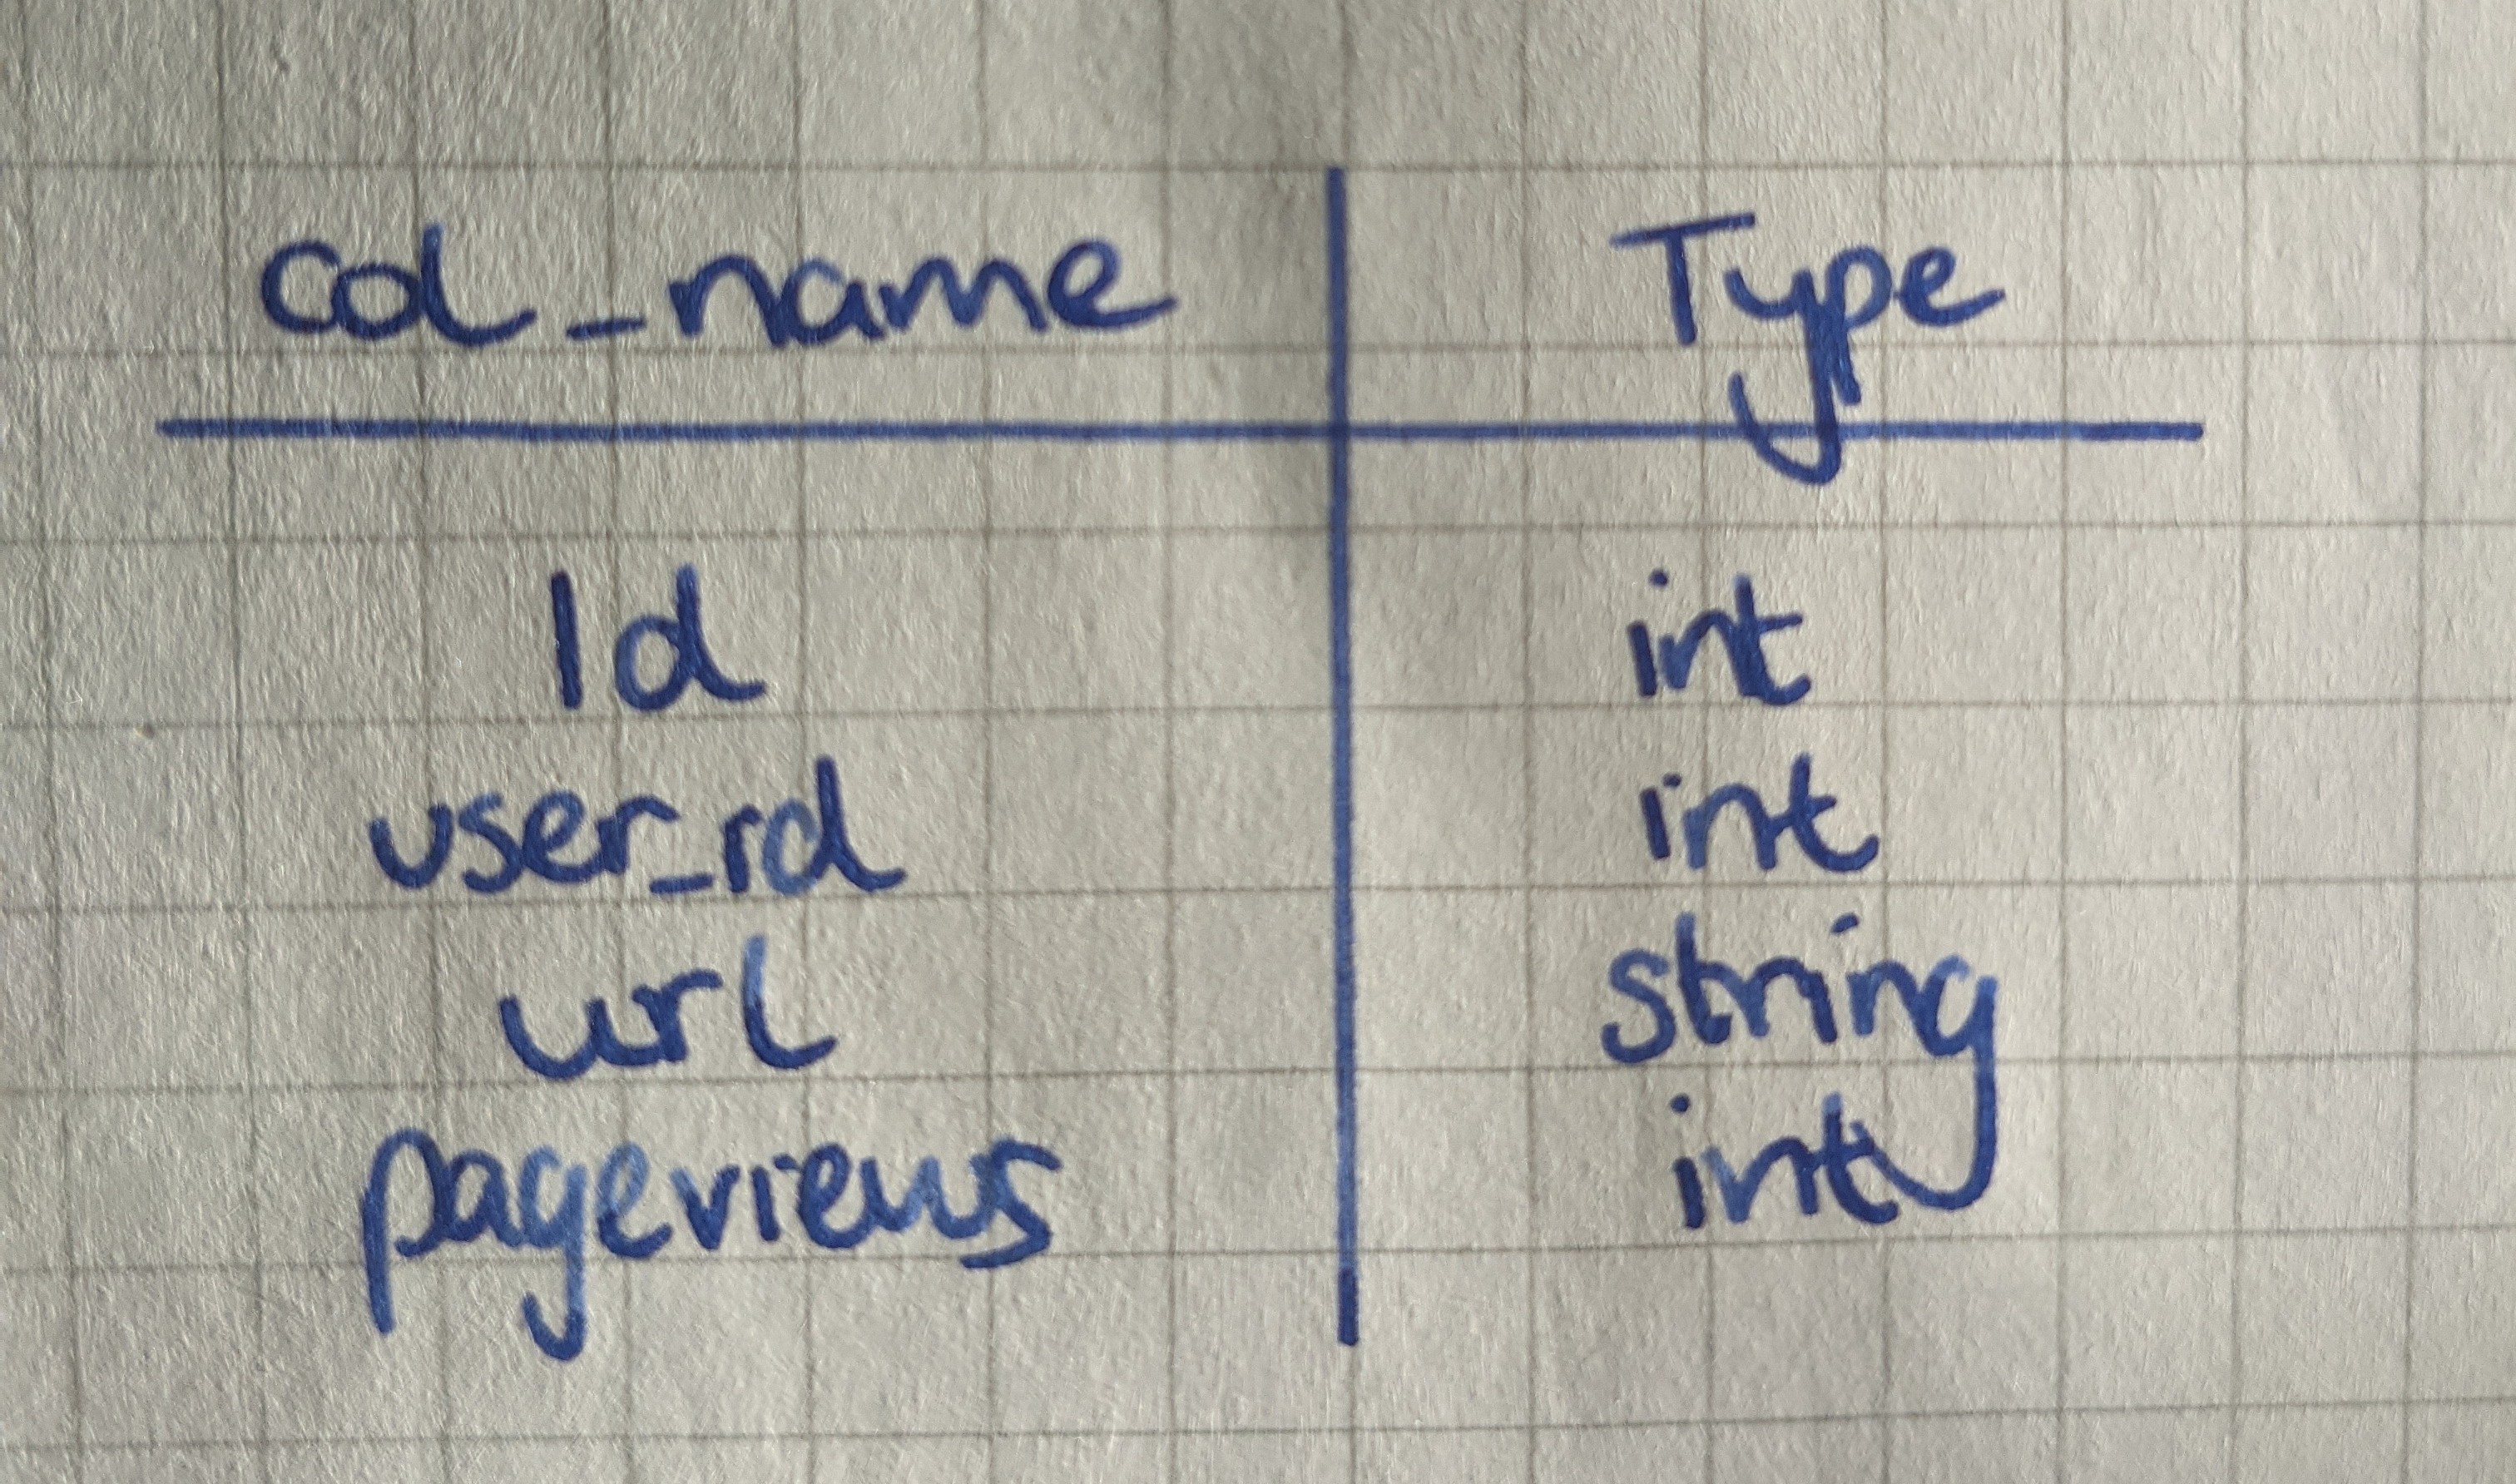 col_name Type
Id int
user_id int
url string
pageviews int